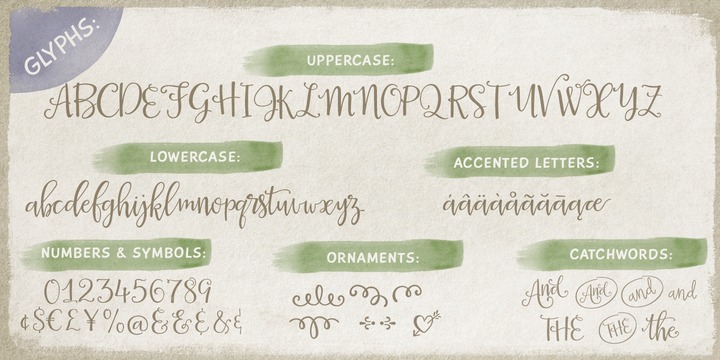 GLYPHS:
UPPERCASE:
ABCDEFGHIJKLMNOPQRSTUVWXYZ
LOWERCASE:
abcdefghijklmnopqrstuvwxyz
ACCENTED LETTERS:
áâäàåãăāąæ
NUMBERS & SYMBOLS:
0123456789
¢$€£¥%@&&&&
ORNAMENTS:
CATCHWORDS:
And And and and
THE THE the